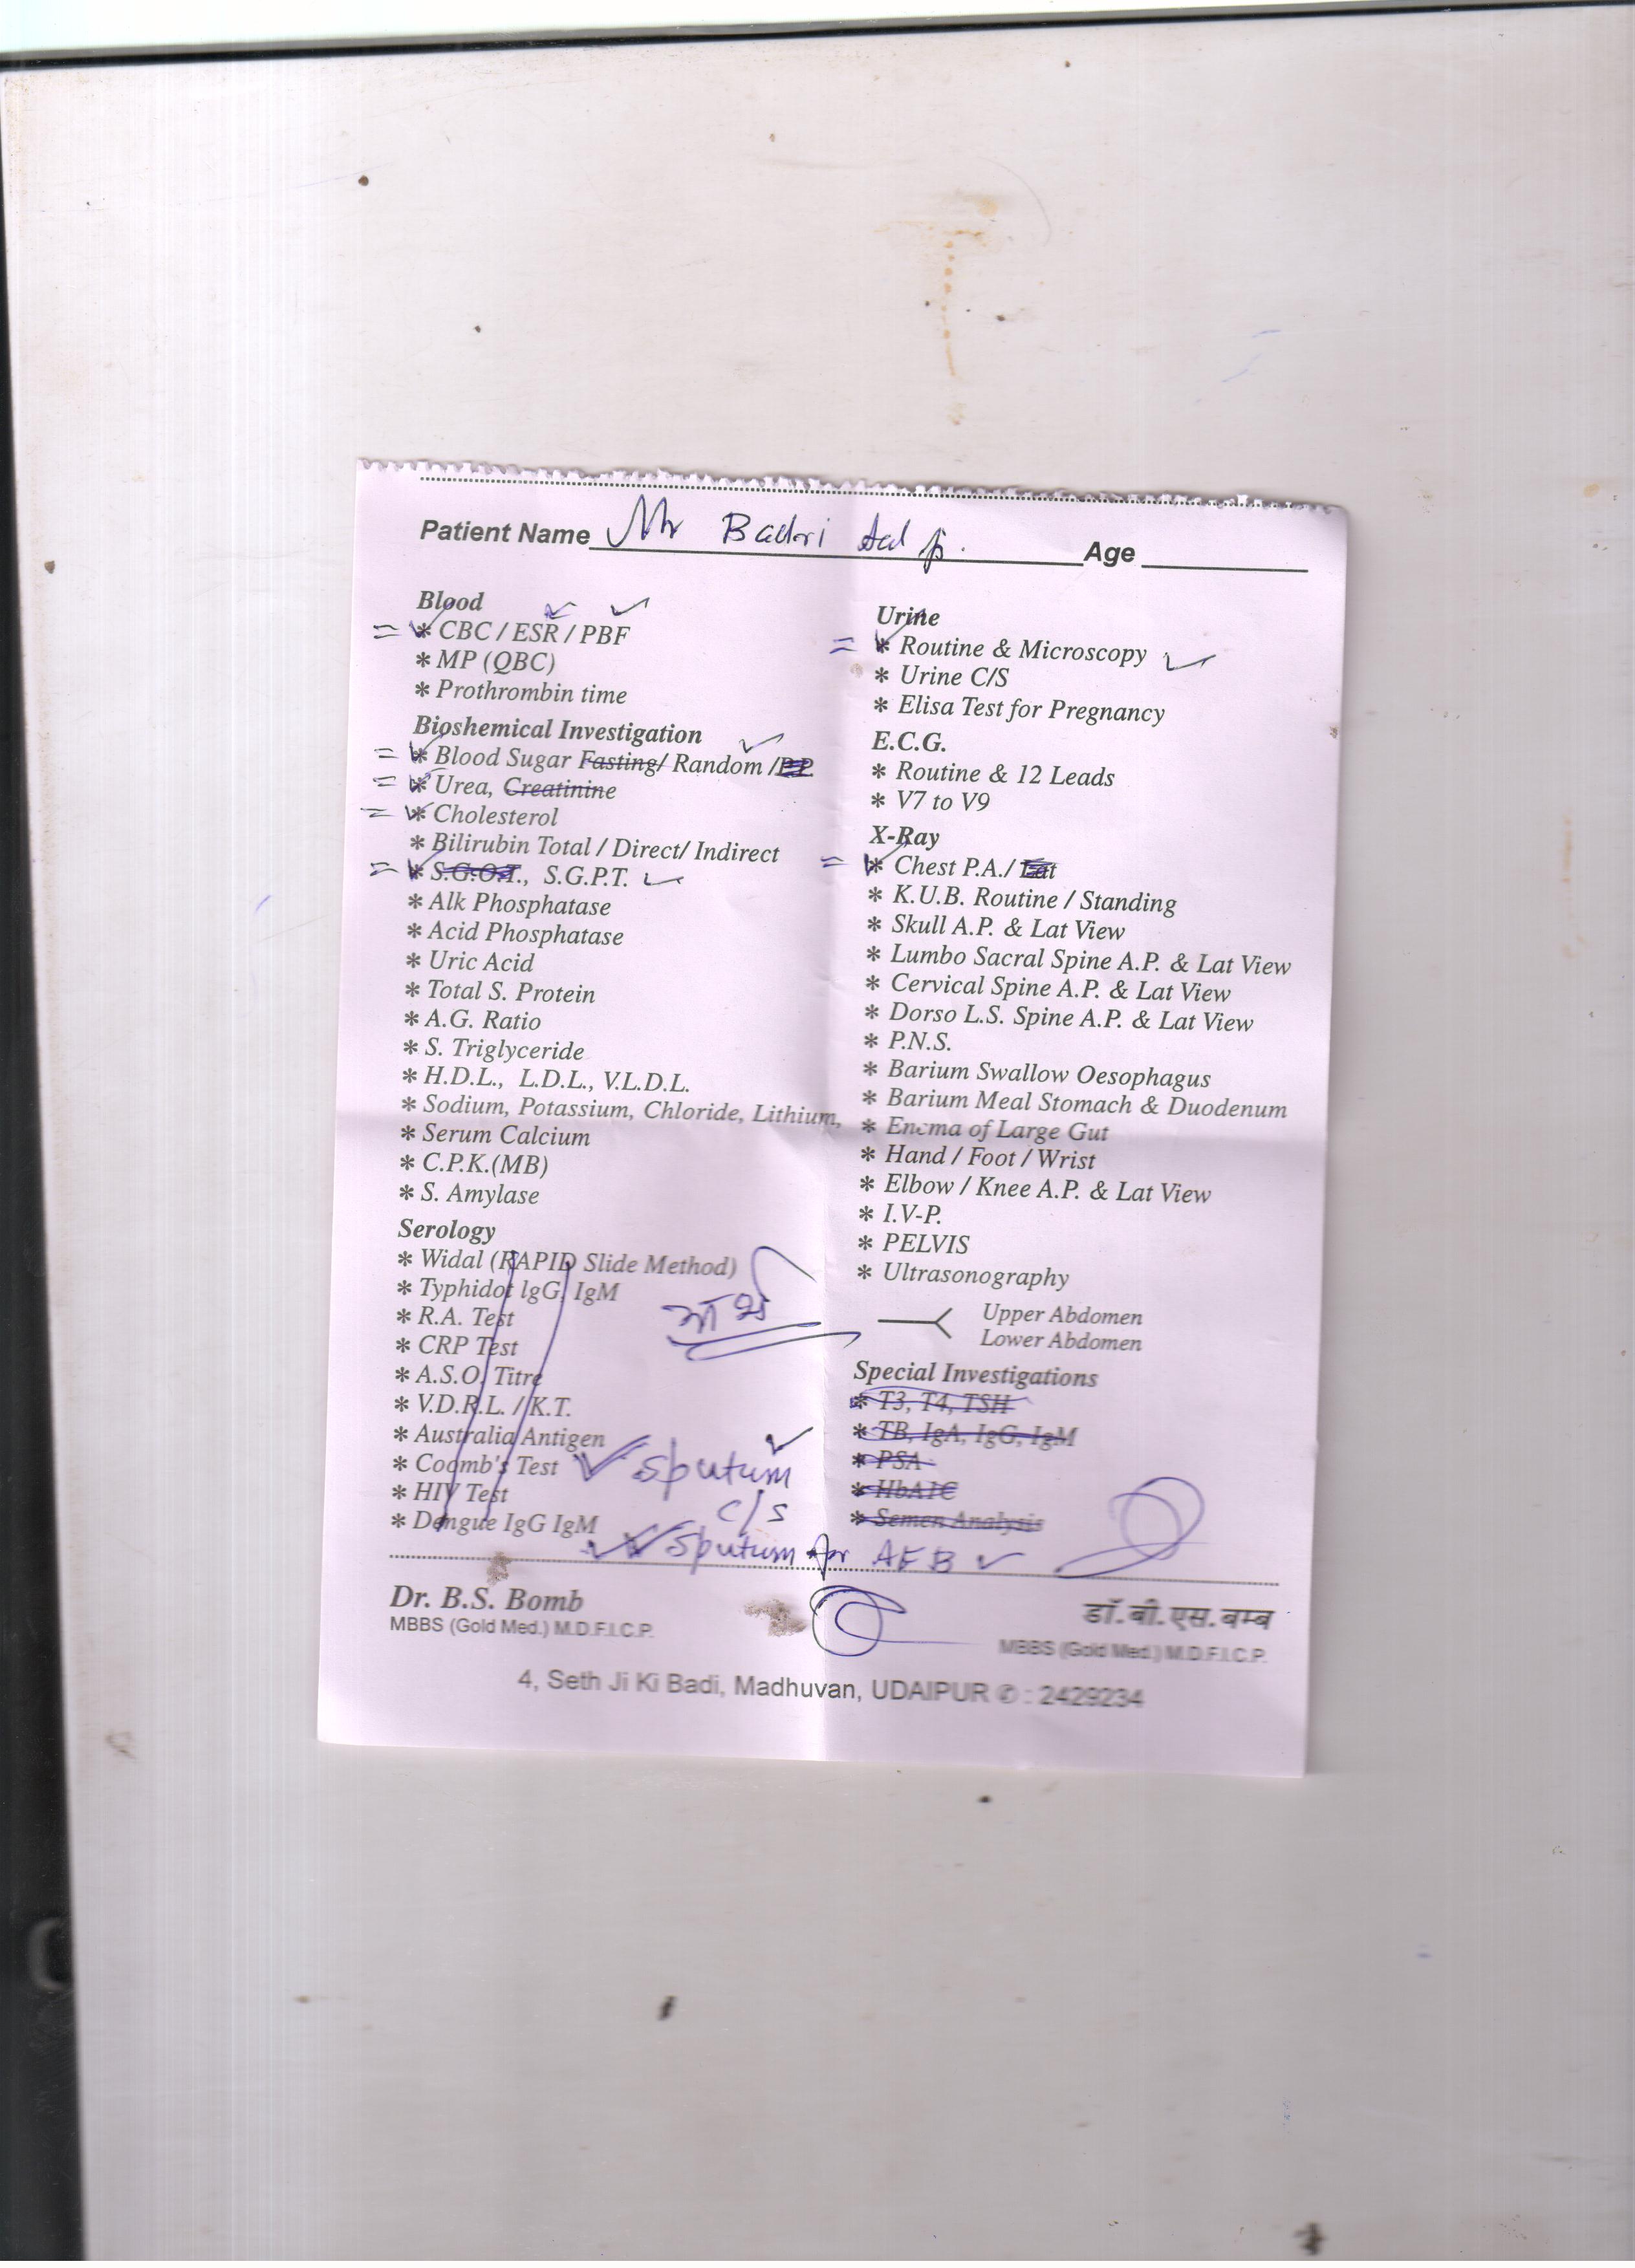 Patient Name Mr Badri Lal ji. Age
Blood
* CBC / ESR / PBF
* MP (QBC)
* Prothrombin time
Bioshemical Investigation
* Blood Sugar Fasting/ Random /P.P.
* Urea, Creatinine
* Cholesterol
* Bilirubin Total / Direct/ Indirect
* S.G.O.T., S.G.P.T.
* Alk Phosphatase
* Acid Phosphatase
* Uric Acid
* Total S. Protein
* A.G. Ratio
* S. Triglyceride
* H.D.L., L.D.L., V.L.D.L.
* Sodium, Potassium, Chloride, Lithium,
* Serum Calcium
* C.P.K.(MB)
* S. Amylase
Serology
* Widal (RAPID Slide Method)
* Typhidot lgG, IgM
* R.A. Test
* CRP Test
* A.S.O. Titre
* V.D.R.L. / K.T.
* Australia Antigen
* Coomb's Test
* HIV Test
* Dengue IgG IgM
Sputum
C/S
Sputum for AFB
Urine
* Routine & Microscopy
* Urine C/S
* Elisa Test for Pregnancy
E.C.G.
* Routine & 12 Leads
* V7 to V9
X-Ray
* Chest P.A./ Lat
* K.U.B. Routine / Standing
* Skull A.P. & Lat View
* Lumbo Sacral Spine A.P. & Lat View
* Cervical Spine A.P. & Lat View
* Dorso L.S. Spine A.P. & Lat View
* P.N.S.
* Barium Swallow Oesophagus
* Barium Meal Stomach & Duodenum
* Enema of Large Gut
* Hand / Foot / Wrist
* Elbow / Knee A.P. & Lat View
* I.V-P.
* PELVIS
* Ultrasonography
Upper Abdomen
Lower Abdomen
Special Investigations
* T3, T4, TSH
* TB, IgA, IgG, IgM
* PSA
* HbA1C
* Semen Analysis
Dr. B.S. Bomb
MBBS (Gold Med.) M.D.F.I.C.P.
डॉ. बी. एस. बम्ब
MBBS (Gold Med.) M.D.F.I.C.P.
4, Seth Ji Ki Badi, Madhuvan, UDAIPUR ✆ : 2429234